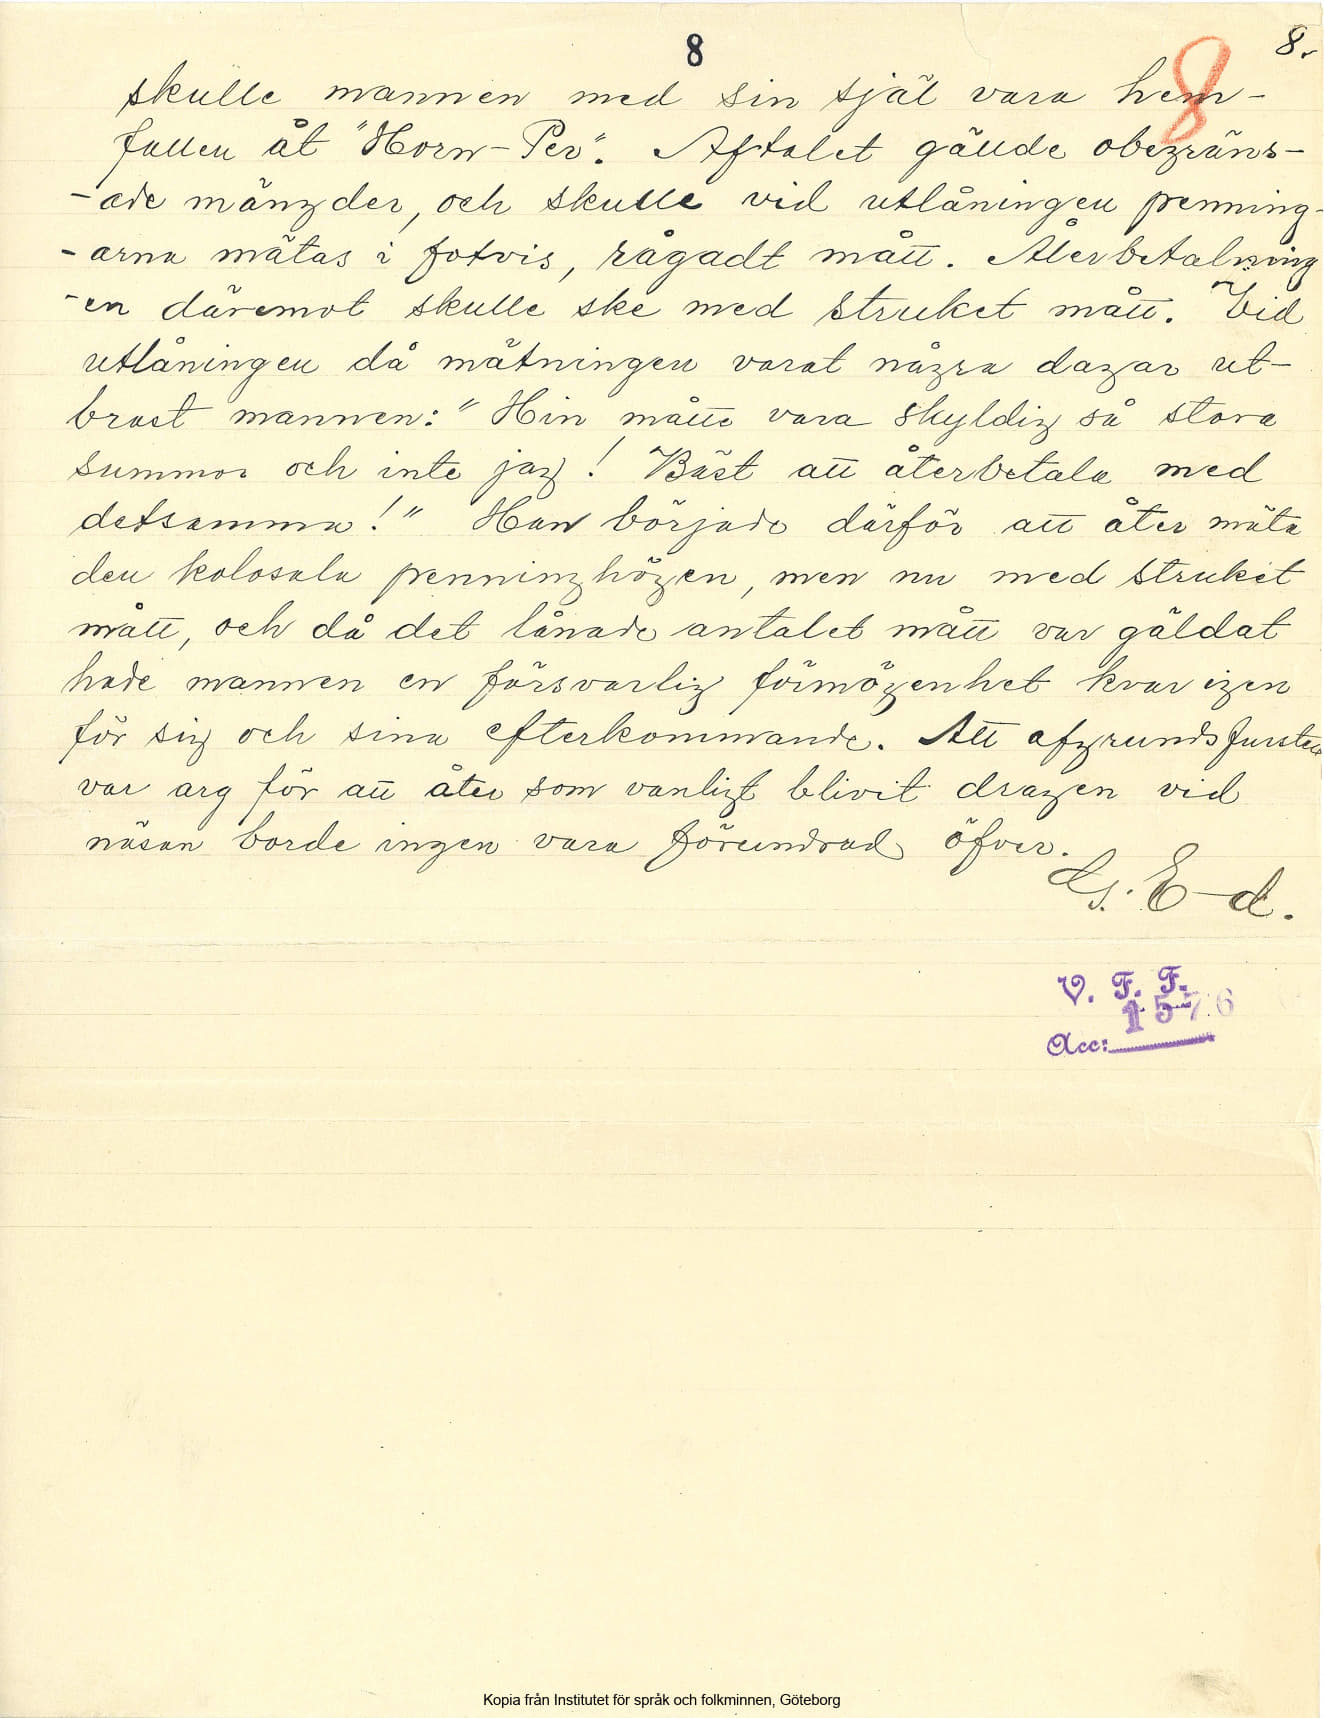 8
8
8.
skulle mannen med sin själ vara hem-
fallen åt "Horn-Per". Aftalet gällde obegräns-
-ade mängder, och skulle vid utlåningen penning-
-arna mätas i fotvis, rågadt mått. Återbetalning
-en däremot skulle ske med struket mått. Vid
utlåningen då mätningen varat några dagar ut-
brast mannen: "Hin måtte vara skyldig så stora
summor och inte jag! Bäst att återbetala med
detsamma!" Han började därför att åter mäta
den kolosala penninghögen, men nu med struket
mått, och då det lånade antalet mått var gäldat
hade mannen en försvarlig förmögenhet kvar igen
för sig och sina efterkommande. Att afgrundsfursten
var arg för att åter som vanligt blivit dragen vid
näsan borde ingen vara förundrad öfver.
G. E-d.
V. F. F.
1576
Acc:
Kopia från Institutet för språk och folkminnen, Göteborg